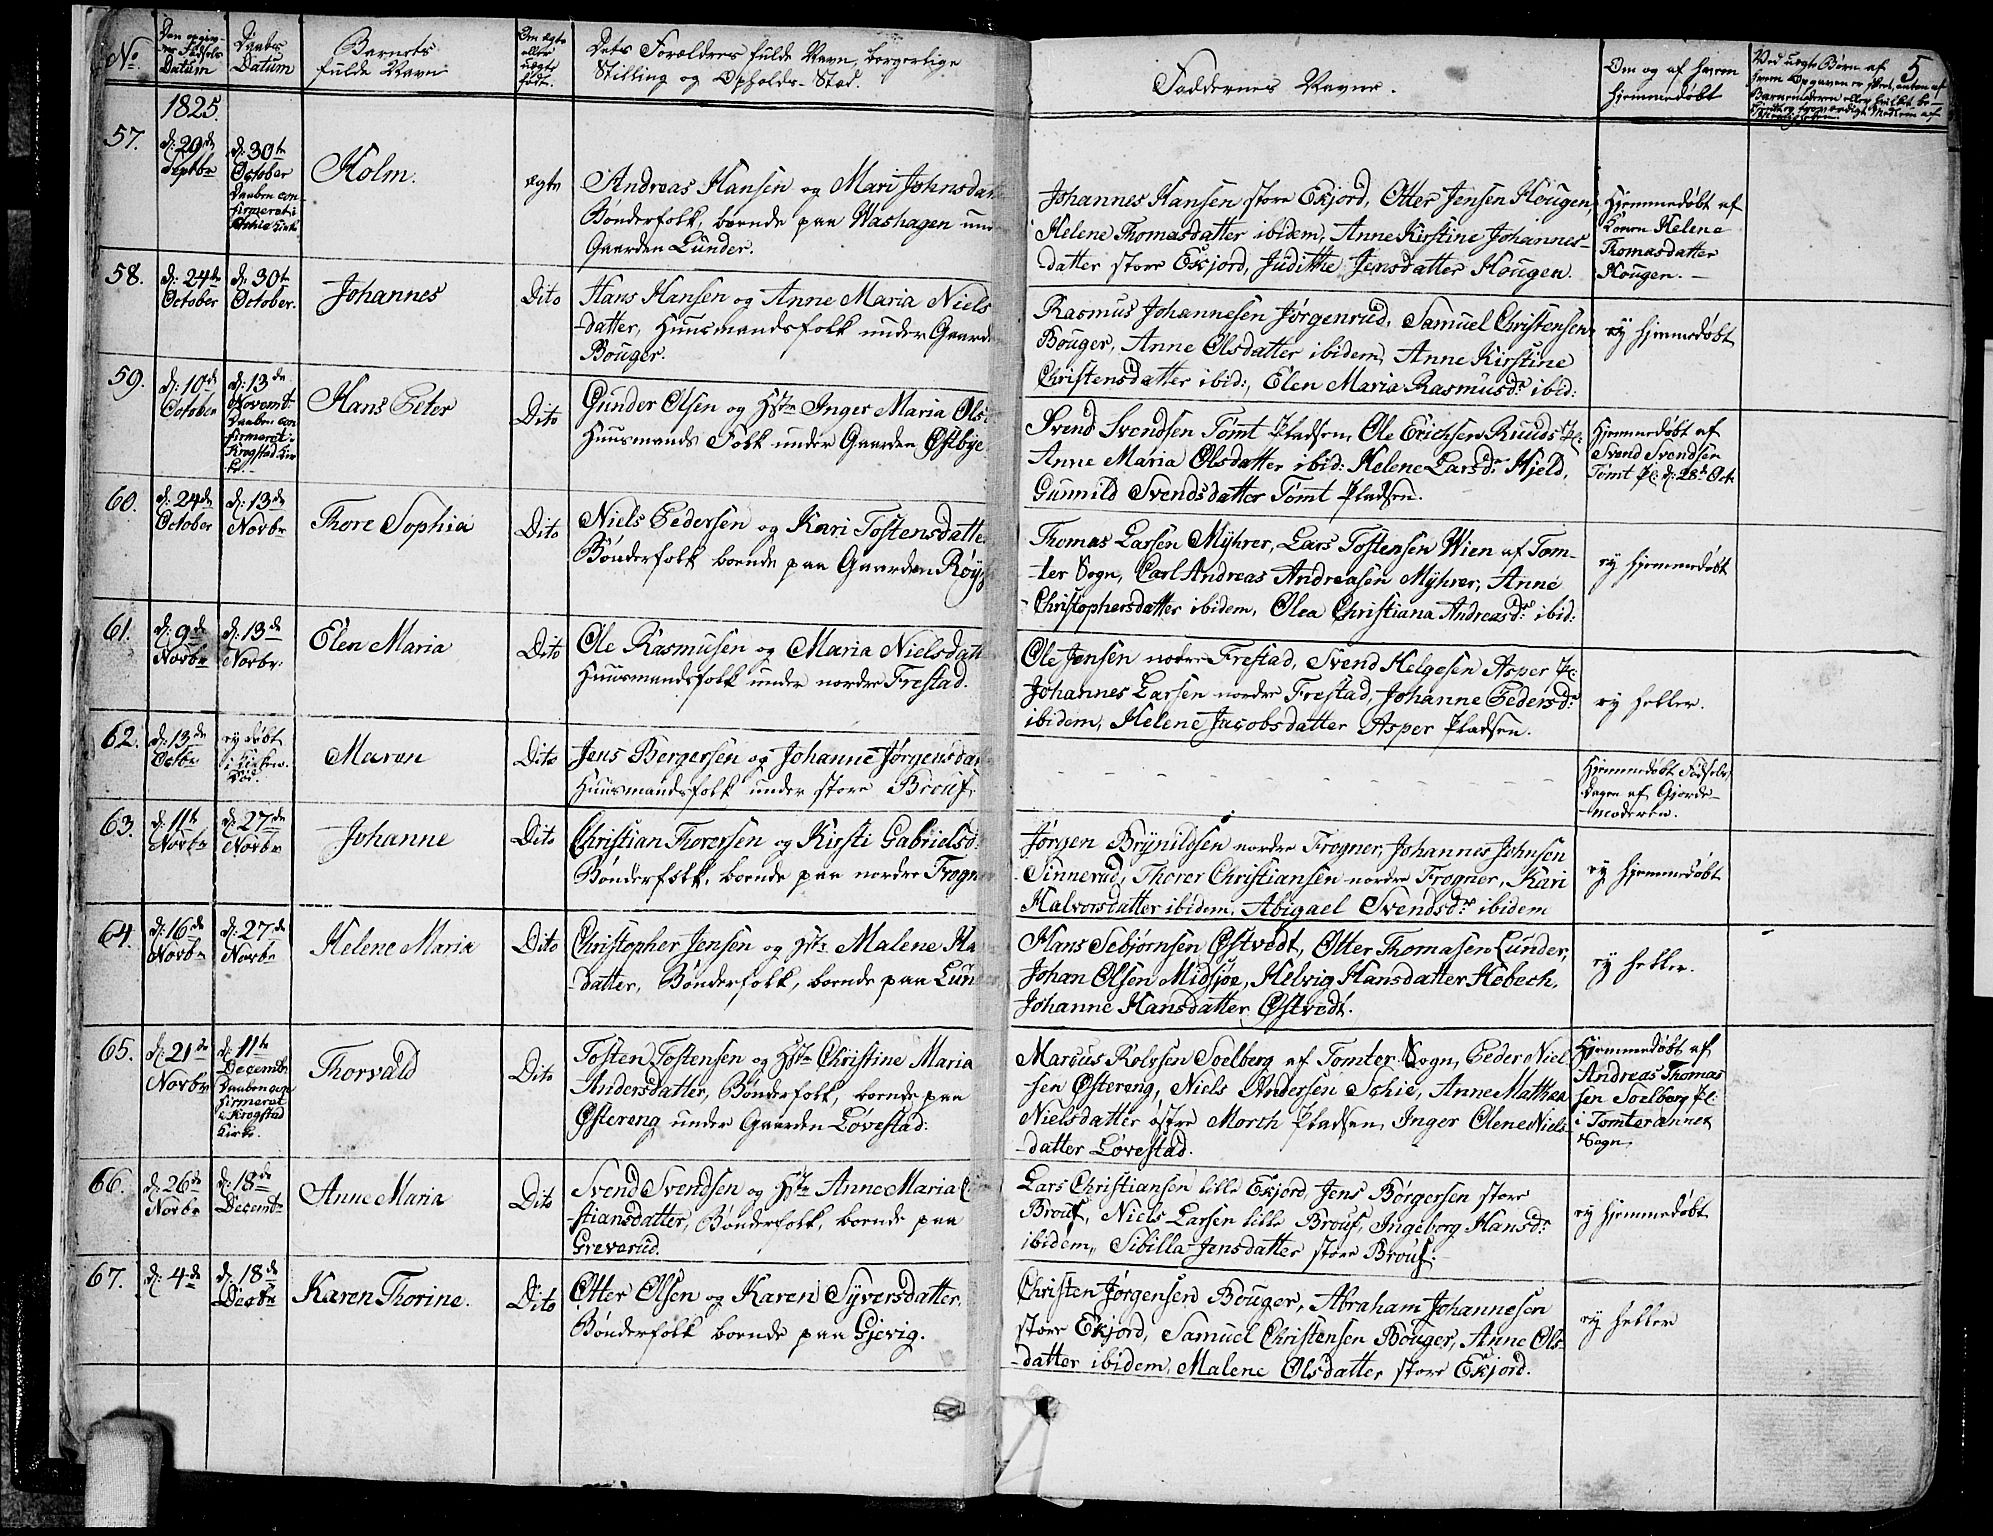 No.
Den opgiv-
ne Fødsels
Datum
Daabs
Datum
Barnets
fulde Navn
Om ægte
eller
uægte
født.
Dets Forældres fulde Navn, borgerlige
Stilling og Opholds-Sted.
Faddernes Navne.
Om og af hvem
hjemmedøbt
Ved uægte Børn af
hvem Opgaven er skeet, enten af
Barnemoderen eller
5
1825.
57.
d: 29de
Septbr
d: 30te
October
Daaben con-
firmeret i
Kirke
Holm.
ægte
Andreas Hansen og Mari Johnsdatter
Bønderfolk, boende paa Washagen under
Gaarden Lunder.
Johannes Hansen store Ekjord, Otter Jensen Hougen,
Helene Thomasdatter ibidem, Anne Kirstine Johannes-
-datter store Ekjord, Judithe Jensdatter Hougen.
Hjemmedøbt af
Konen Helene
Thomasdatter
Hougen. -
58.
d: 24de
October
d: 30te
October.
Johannes
Dito
Hans Hansen og Anne Maria Niels
-datter, Huusmandsfolk under Gaarden
Bouger.
Rasmus Johannesen Jørgenrud, Samuel Christensen
Bouger, Anne Olsdatter ibidem, Anne Kirstine
Christensdatter ibid:, Elen Maria Rasmusdr ibid:
ey hjemmedøbt
59.
d: 10de
October
d: 13de
Novemb:
Daaben con-
firmeret i
Krogstad Kir-
ke.-
Hans Peter
Dito
Gunder Olsen og Hstr Inger Maria Olsd
Huusmands Folk under Gaarden Østbye
Svend Svendsen Tomt Pladsen, Ole Erichsen Ruuds Pl:
Anne Maria Olsdatter ibid: Helene Larsdr Hjeld,
Gunnild Svendsdatter Tomt Pladsen.
Hjemmedøbt af
Svend Svendsen
Tomt Pl: d: 28de Oct.
60.
d: 24de
October
d: 13de
Novbr
Thore Sophia
Dito
Niels Pedersen og Kari Tostensdatter
Bønderfolk boende paa Gaarden
Thomas Larsen Myhrer, Lars Tostensen Wien af Tom-
-ter Sogn, Carl Andreas Andreasen Myhrer, Anne
Christophersdatter ibidem, Olea Christiana Andreasdr ibid:
ey hjemmedøbt
61.
d: 9de
Novbr
d: 13de
Novbr.
Elen Maria
Dito
Ole Rasmusen og Maria Nielsdatt
Huusmandsfolk under nordre Frestad.
Ole Jensen nordre Frestad, Svend Helgesen Asper Pl:
Johannes Larsen nordre Frestad, Johanne Pedersdr
ibidem, Helene Jacobsdatter Asper Pladsen.
ey heller.
62.
d: 13de
Octbr
ey døbt
i Kirken.
Død.
Maren
Dito
Jens Bergersen og Johanne Jørgensdatter
Huusmandsfolk under store Brouf.
Hjemmedøbt Fødsels
Dagen af Gjorde-
-moderen.
63.
d: 11te
Novbr
d: 27de
Novbr
Johanne
Dito
Christian Thorersen og Kirsti Gabrielsd:
Bønderfolk, boende paa nordre Frogner
Jørgen Brynildsen nordre Frogner, Johannes Johnsen
Sinnerud, Thorer Christiansen nordre Frogner, Kari
Halvorsdatter ibidem, Abigael Svendsdr ibidem
ey hjemmedøbt
64.
d: 16de
Novbr
d: 27de
Novbr
Helene Maria
Dito
Christopher Jensen og Hstr Malene Ha
-datter, Bønderfolk, boende paa Lunder
Hans Sebjørnsen Østvedt, Otter Thomasen Lunder,
Johan Olsen Midsjøe, Helvig Hansdatter Hobech,
Johanne Hansdatter Østvedt.
ey heller.
65.
d: 21de
Novbr
d: 11te
Decembr
Daaben con-
firmeret
i Krogstad
Kirke.
Thorvald
Dito
Tosten Tostensen og Hstr Christine Maria
Andersdatter, Bønderfolk, boende paa
Østereng under Gaarden Løvestad.
Marcus Rolvsen Soelberg af Tomter Sogn, Peder Niel-
-sen Østereng, Niels Andersen Schie, Anne Mathea
Nielsdatter østre Morth Pladsen, Inger Olene Niels
-datter Løvestad.
Hjemmedøbt af
Andreas Thomas
sen Soelberg Pl:
i Tomter annex
Sogn.
66.
d: 26de
Novbr
d: 18de
Decembr
Anne Maria
Dito
Svend Svendsen og Hstr Anne Maria
-stiansdatter, Bønderfolk, boende paa
Greverud.
Lars Christiansen lille Ekjord, Jens Børgersen store
Brouf, Niels Larsen lille Brouf, Ingeborg Hansdr
ibidem, Sibilla Jensdatter store Brouf.-
ey hjemmedøbt
67.
d: 4de
d: 18de
Decbr
Karen Thorine.
Dito
Otter Olsen og Karen Syversdatter,
Bønderfolk boende paa Gjevig.
Christen Jørgensen Bouger, Abraham Johannesen
store Ekjord, Samuel Christensen Bouger, Anne Ols-
-datter ibidem, Malene Olsdatter store Ekjord.
ey heller